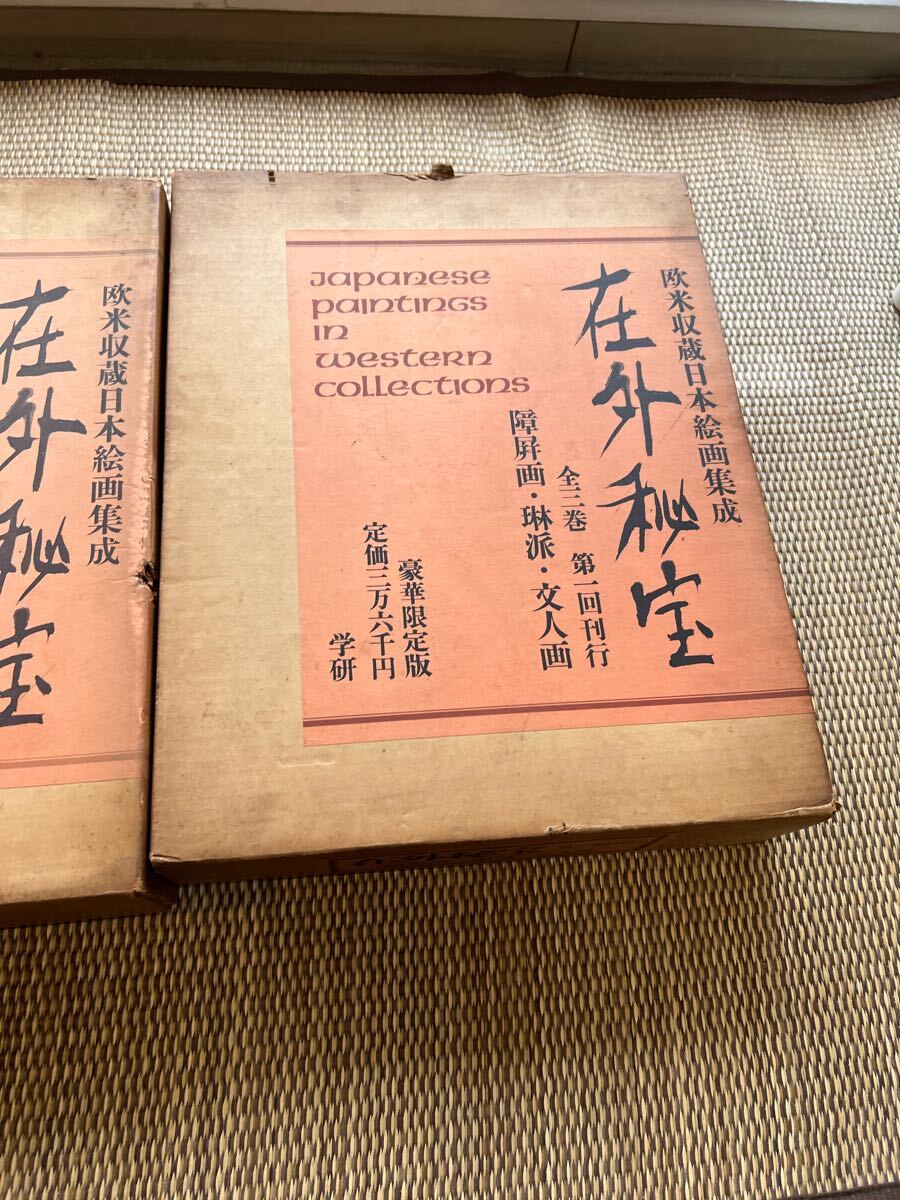 欧米収蔵日本絵画集成
在外秘宝
欧米収蔵日本絵画集成
在外秘宝
Japanese
paintings
in
western
collections
全三巻 第一回刊行
障屏画・琳派・文人画
豪華限定版
定価三万六千円
学研